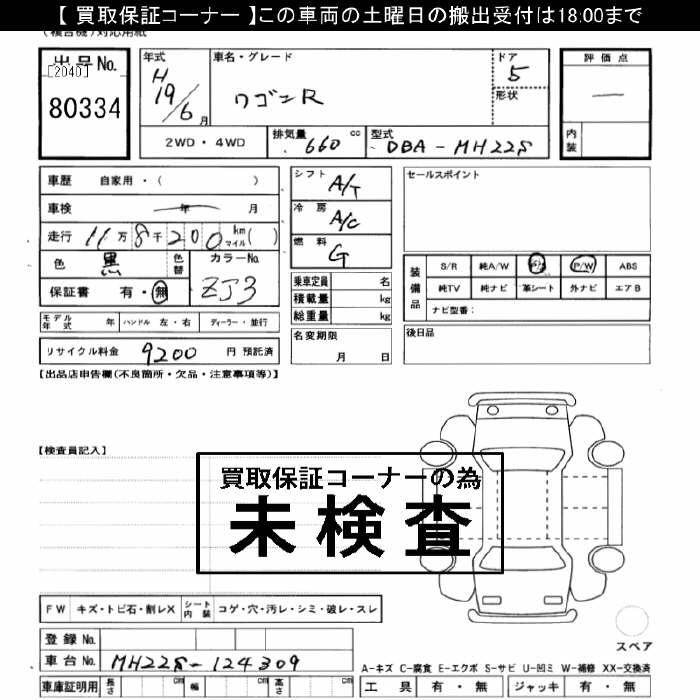 【 買取保証コーナー 】この車両の土曜日の搬出受付は18:00まで
出品No.
[2040]
80334
年式
H19/6月
車名・グレード
ワゴンR
ドア
5
形状
評価点
—
内装
2WD・4WD
排気量 660 cc
型式 DBA-MH22S
車歴 自家用・( )
車検 年 月
走行 11万8千200 km マイル( )
色 黒 色替
カラーNo. ZJ3
保証書 有・無
シフト A/T
冷房 A/C
燃料 G
乗車定員 名
積載量 kg
総重量 kg
セールスポイント
装備品
S/R 純A/W P/W ABS
純TV 純ナビ 革シート 外ナビ エアB
ナビ型番:
モデル年式 年 ハンドル 左・右 ディーラー・並行
名変期限
月 日
後日品
リサイクル料金 9200 円 預託済
【出品店申告欄(不良箇所・欠品・注意事項等)】
【検査員記入】
買取保証コーナーの為
未検査
FW キズ・トビ石・割レX シート内装 コゲ・穴・汚レ・シミ・破レ・スレ
登録No.
車台No. MH22S-124309
スペア
A-キズ C-腐食 E-エクボ S-サビ U-凹ミ W-補修 XX-交換済
車庫証明用 長さ cm 幅 cm 高さ cm
工具 有・無 ジャッキ 有・無